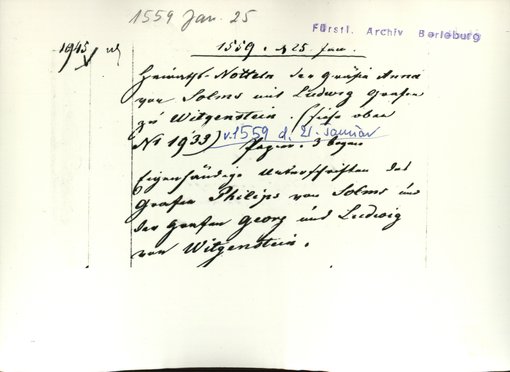 1559 Jan. 25
Fürstl. Archiv Berleburg
1945
1559. d 25. Jan.
Heiraths-Notteln der Gräfin Anna
von Solms mit Ludwig Grafen
zu Witgenstein. (siehe oben
No 1933) v. 1559 d. 21. Januar
Papier. 3 bogen
Eigenhändige Unterschriften des
Grafen Philips von Solms und
der Grafen Georg und Ludwig
von Witgenstein.